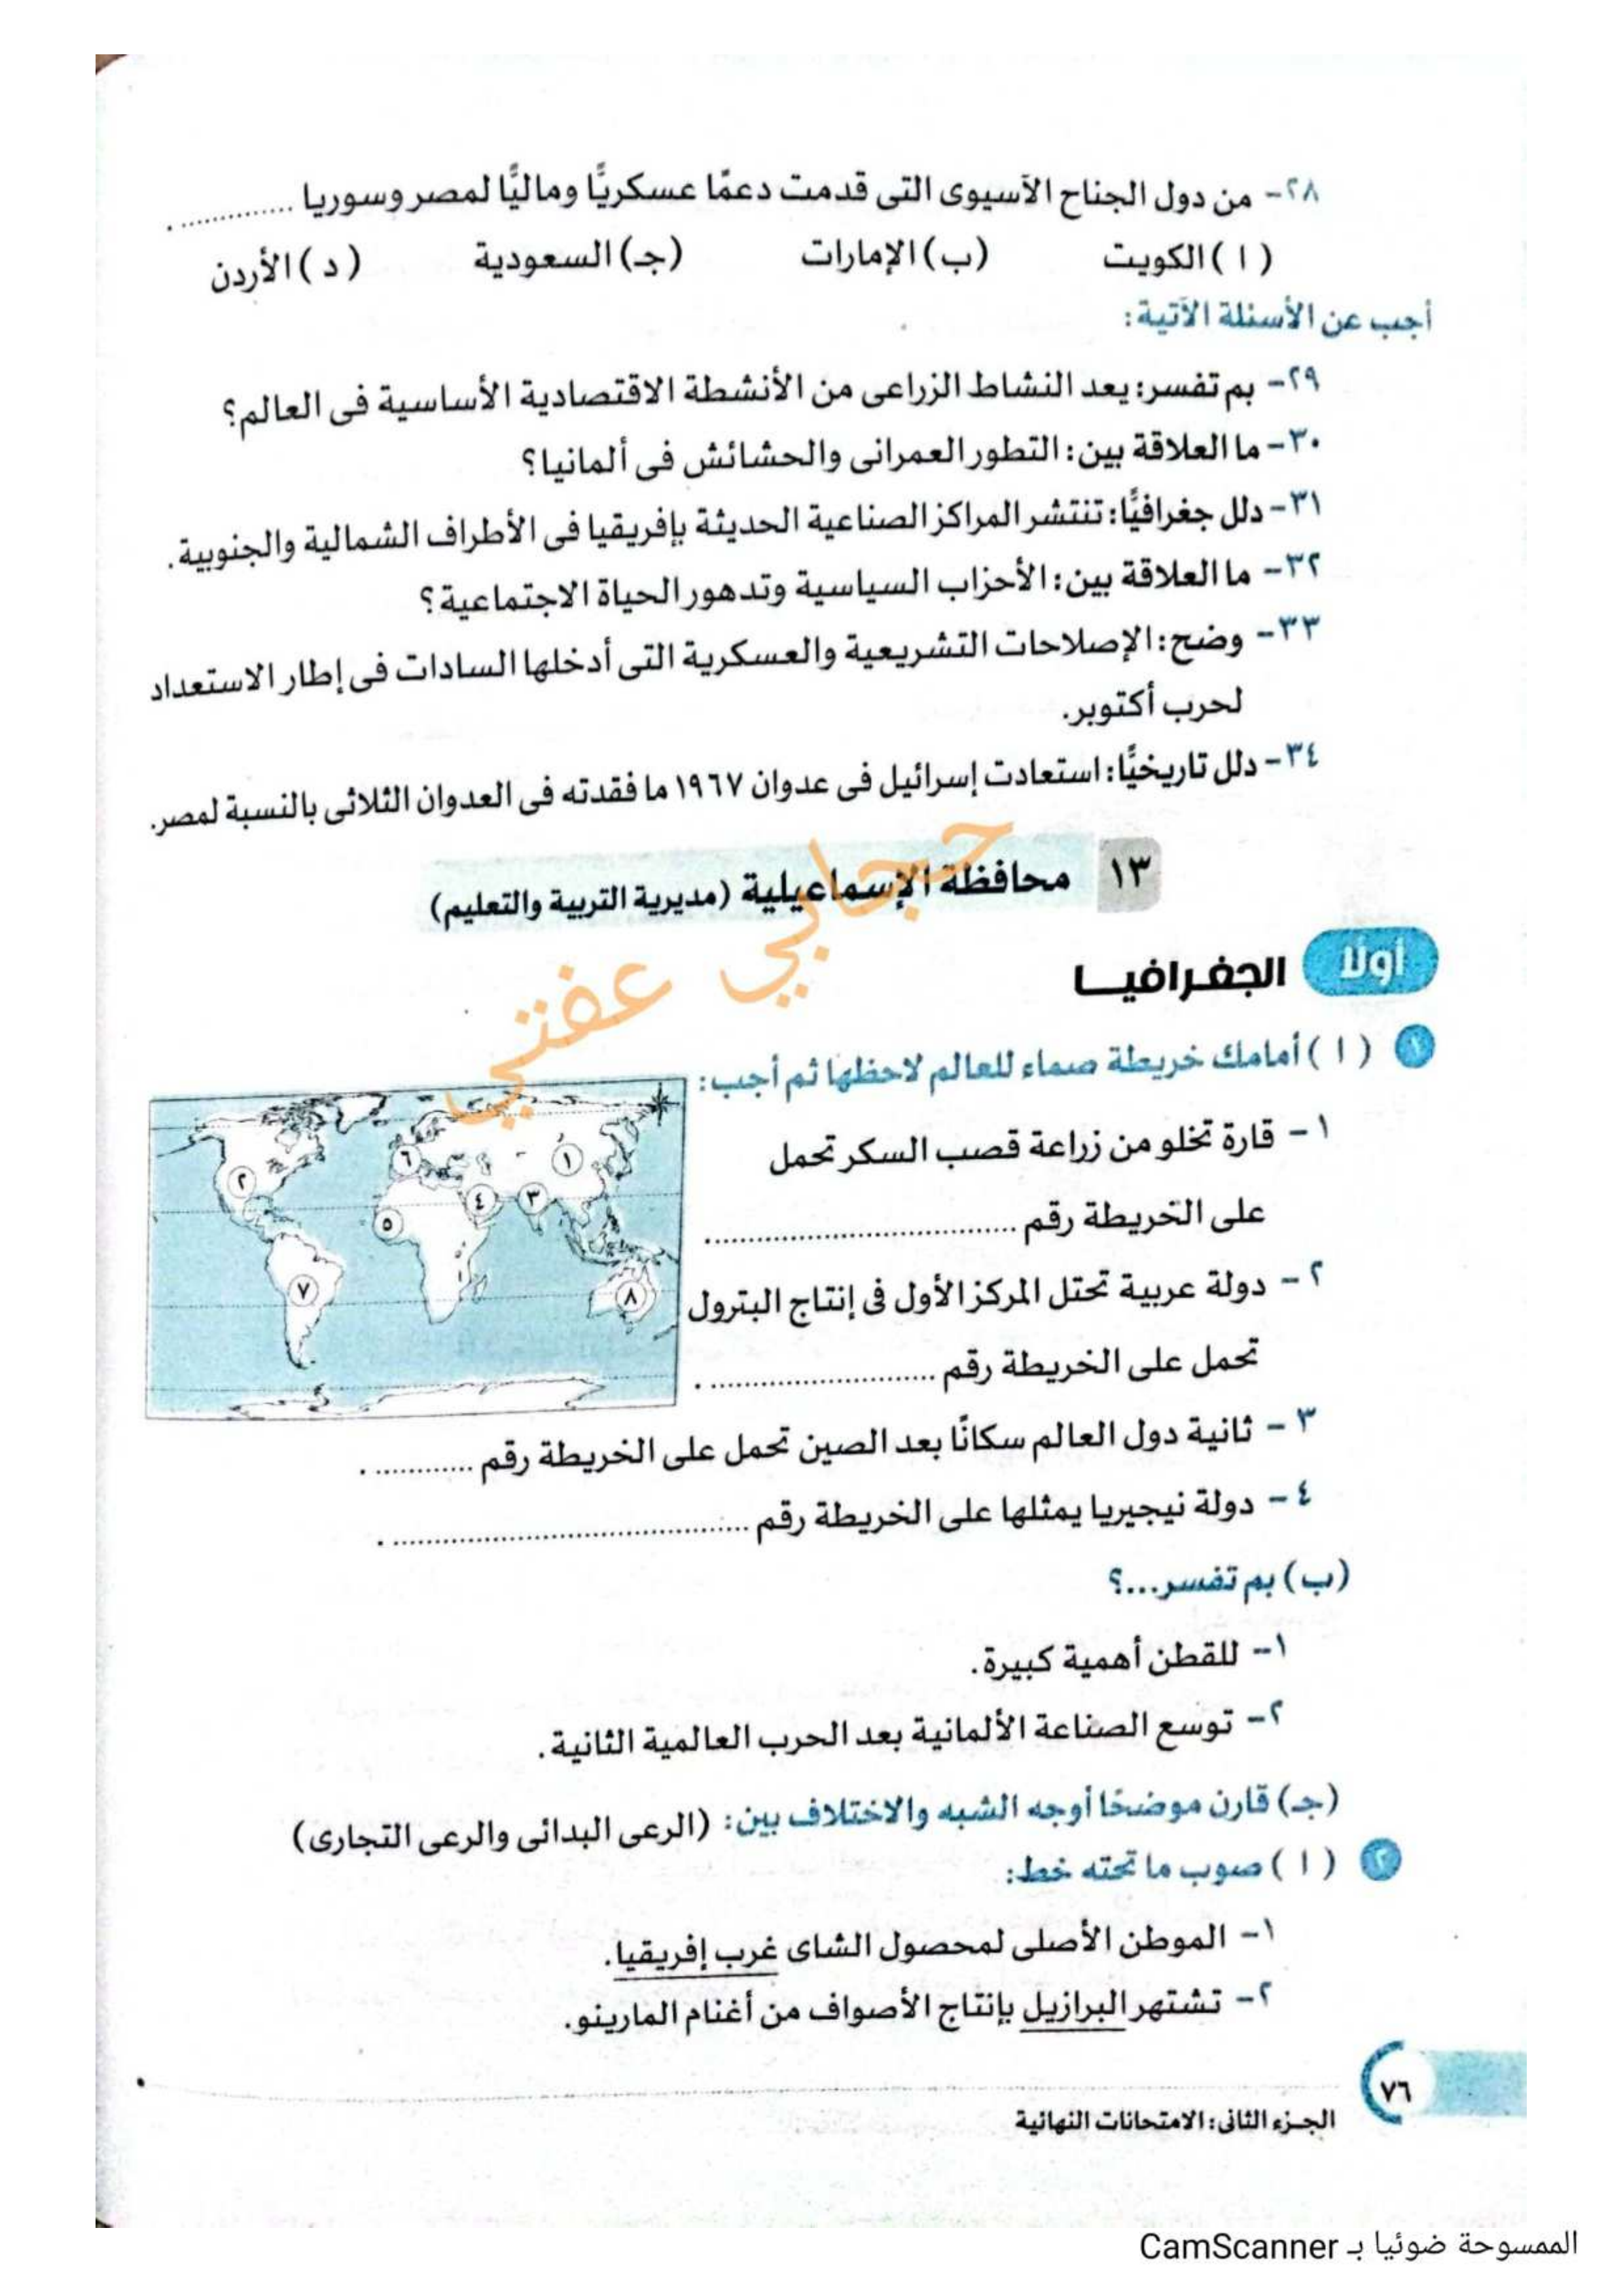 ٢٨- من دول الجناح الآسيوى التى قدمت دعمًا عسكريًّا وماليًّا لمصر وسوريا ............... .
( ا ) الكويت (ب) الإمارات (جـ) السعودية ( د ) الأردن
أجب عن الأسئلة الآتية:
٢٩- بم تفسر: يعد النشاط الزراعى من الأنشطة الاقتصادية الأساسية فى العالم؟
٣٠- ما العلاقة بين: التطور العمرانى والحشائش فى ألمانيا؟
٣١- دلل جغرافيًّا: تنتشر المراكز الصناعية الحديثة بإفريقيا فى الأطراف الشمالية والجنوبية.
٣٢- ما العلاقة بين: الأحزاب السياسية وتدهور الحياة الاجتماعية؟
٣٣- وضح: الإصلاحات التشريعية والعسكرية التى أدخلها السادات فى إطار الاستعداد
لحرب أكتوبر.
٣٤- دلل تاريخيًّا: استعادت إسرائيل فى عدوان ١٩٦٧ ما فقدته فى العدوان الثلاثى بالنسبة لمصر.
١٣ محافظة الإسماعيلية (مديرية التربية والتعليم)
حجابي عفتي
أولًا الجغرافيـــا
١ ( ا ) أمامك خريطة صماء للعالم لاحظها ثم أجب:
١ - قارة تخلو من زراعة قصب السكر تحمل
على الخريطة رقم ...............................
٢ - دولة عربية تحتل المركز الأول فى إنتاج البترول
تحمل على الخريطة رقم ....................... .
١
٢
٣
٤
٥
٦
٧
٨
٣ - ثانية دول العالم سكانًا بعد الصين تحمل على الخريطة رقم ............ .
٤ - دولة نيجيريا يمثلها على الخريطة رقم .................................... .
(ب) بم تفسر...؟
١- للقطن أهمية كبيرة.
٢- توسع الصناعة الألمانية بعد الحرب العالمية الثانية.
(جـ) قارن موضحًا أوجه الشبه والاختلاف بين: (الرعى البدائى والرعى التجارى)
٢ ( ا ) صوب ما تحته خط:
١- الموطن الأصلى لمحصول الشاى غرب إفريقيا.
٢- تشتهر البرازيل بإنتاج الأصواف من أغنام المارينو.
٧٦
الجـزء الثانى: الامتحانات النهائية
الممسوحة ضوئيا بـ CamScanner